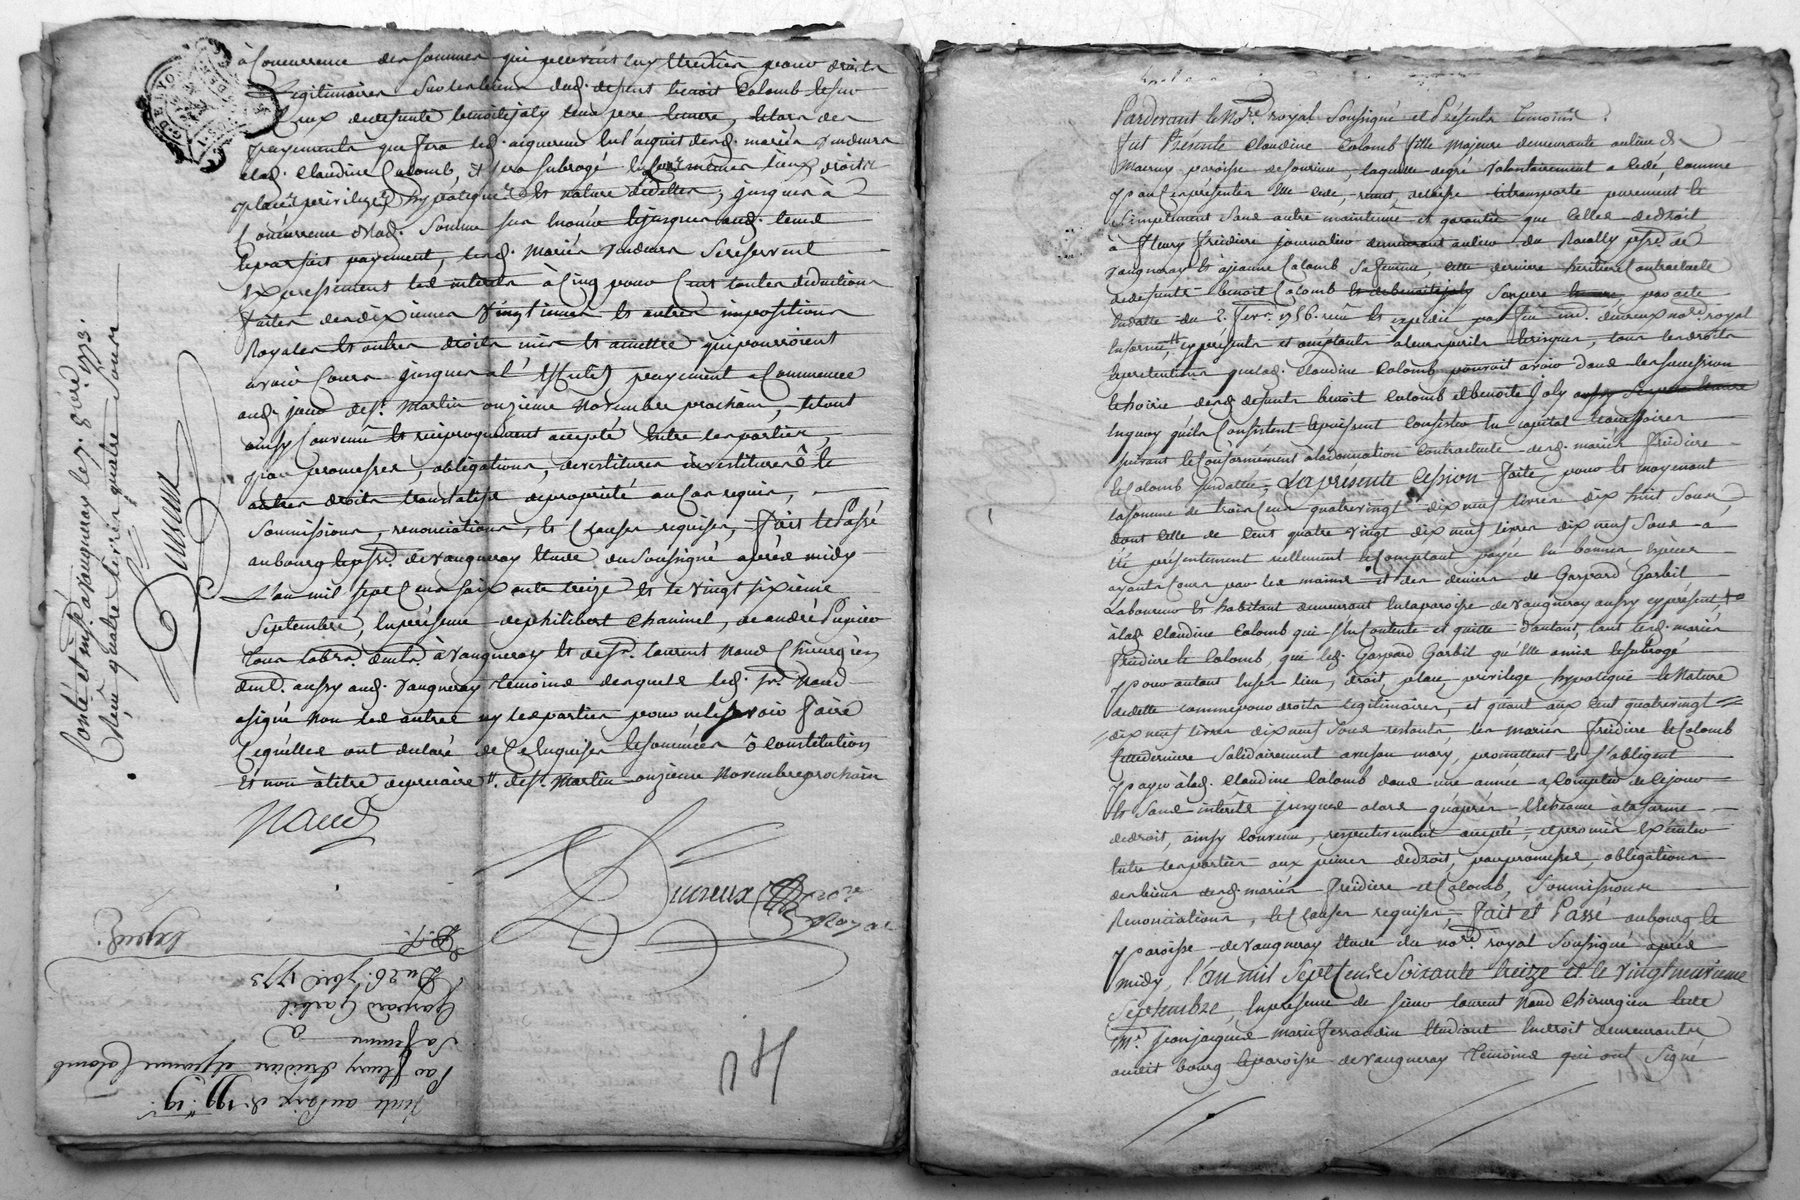 à Concurrence des sommes qui peuvent luy etre dues pour droits
Legitimaires sur les biens dud. defunt benoit Colomb le sien
de defunte benoite joly leur pere et mere, et lors des
payements que fera led. acquereur en l'acquit desd. mariés vendeurs
alad. Claudine Colomb, il sera subrogé en mêmes lieux droits
place privilege hypoteque et nature de dettes, jusques à
Concurrence de lad. somme
le parfait payement, lesd. mariés vendeurs se reservent
expressement les interets à cinq pour Cent toutes deductions
faites des dixiemes vingtiemes et autres impositions
Royales et autres droits mis et à mettre qui pourroient
avoir Cours jusques a l'effectif payement a Commencer
aud. jour de st. Martin onzieme Novembre prochain, le tout
ainsy Convenu et reciproquement accepté entre les parties,
par promesses, obligations, devestitures investitures & le
autres droits translatifs de propriété au Cas requis,
Soumissions, renonciations, et Clauses requises, fait et Passé
au bourg et psse. de vaugneray etude du soussigné aprés midy
L'an mil sept Cent soixante treize et le vingt sixieme
Septembre, en présence de philibert Chauvinel, de andré Pupier
tous labrs. demts. à vaugneray et de sr. laurent Naud Chirurgien
demt. aussy aud. vaugneray temoins desquels led. sr. Naud
a signé non les autres ny les parties pour ne le savoir faire
Cequ'elles ont declaré de Ce Enquises et sommées & Constitution
Et non à titre de precaire //. de st. Martin onzieme Novembre prochain
Naud
Ducreux Nore. Royal
Conté et insé. à vaugneray le 7. 8bre. 1773.
quatre livres quatre sous
Ducreux
Vente au Prix de 199# 19s
Par fleury freidiere et jeanne Colomb
Sa femme
à
Gaspard Garbil
Du 26. 7bre. 1773
Exped.
Pardevant le Nore. royal Soussigné et Présents temoins
fut Présente Claudine Colomb fille majeure demeurante au lieu de
Marny paroisse de sourieu, laquelle degré volontairement a cedé, comme
par Ces presentes Elle cede, remet, delaisse et transporte purement et
Simplement sans autre maintenüe et garantie que Celles de droit
à fleury freidiere journalier demeurant au lieu du Recully psse. de
vaugneray et à jeanne Colomb Sa femme, cette derniere heritiere Contractuelle
de defunt benoit Colomb et de benoite joly son pere et mere, par acte
en datte du 2. fevr. 1756. recu et expedié par feu me. ducreux nore. royal
presents et acceptants à leurs perils et risques, tous les droits
et pretentions que lad. Claudine Colomb pouvoit avoir dans les succession
et hoirie desd. defunts benoit Colomb et benoite joly aussy ses pere et mere
En quoy qu'ils Consistent et puissent Consister en capital et accessoires
suivant et Conformement à la donnation Contractuelle desd. mariés freidiere
et Colomb susdattée, La présente Cession faite pour et moyenant
la somme de trois Cens quatre vingt dix neuf livres dix huit sous
dont celle de Cent quatre vingt dix neuf livres dix neuf sous a
été présentement réellement et Comptant payée en bonnes Especes
ayants Cours par les mains et des deniers de Gaspard Garbil
Laboureur et habitant demeurant en la paroisse de vaugneray aussy cy présent,
à lad. Claudine Colomb qui s'en Contente et quitte d'autant, tant lesd. mariés
freidiere et Colomb, que led. Gaspard Garbil qu'Elle a mis et subrogé
pour autant En son lieu, droit, place, privilege hypoteque et Nature
de dette comme pour droits legitimaires, et quant aux Cent quatre vingt
dix neuf livres dix neuf sous restants, les mariés freidiere et Colomb
cette derniere Solidairement avec son mary, promettent et s'obligent
payer à lad. Claudine Colomb dans une année a Compter de Ce jour
et sans interêts jusques alors qu'aprés l'Echeance à la forme
de droit, ainsy Convenu, respectivement accepté, et promis Executer
Entre les parties aux peines de droit, par promesses, obligations
des biens desd. mariés freidiere et Colomb, Soumissions
Renonciations, et Clauses requises, Fait et Passé au bourg et
paroisse de vaugneray etude du nore. royal Soussigné aprés
midy, l'an mil sept Cens soixante treize et le vingt neuvieme
Septembre, en présence de sieur laurent Naud Chirurgien et de
Me. jean jacques marie ferrandin Etudiant En droit demeurants
audit bourg et paroisse de vaugneray temoins qui ont Signé